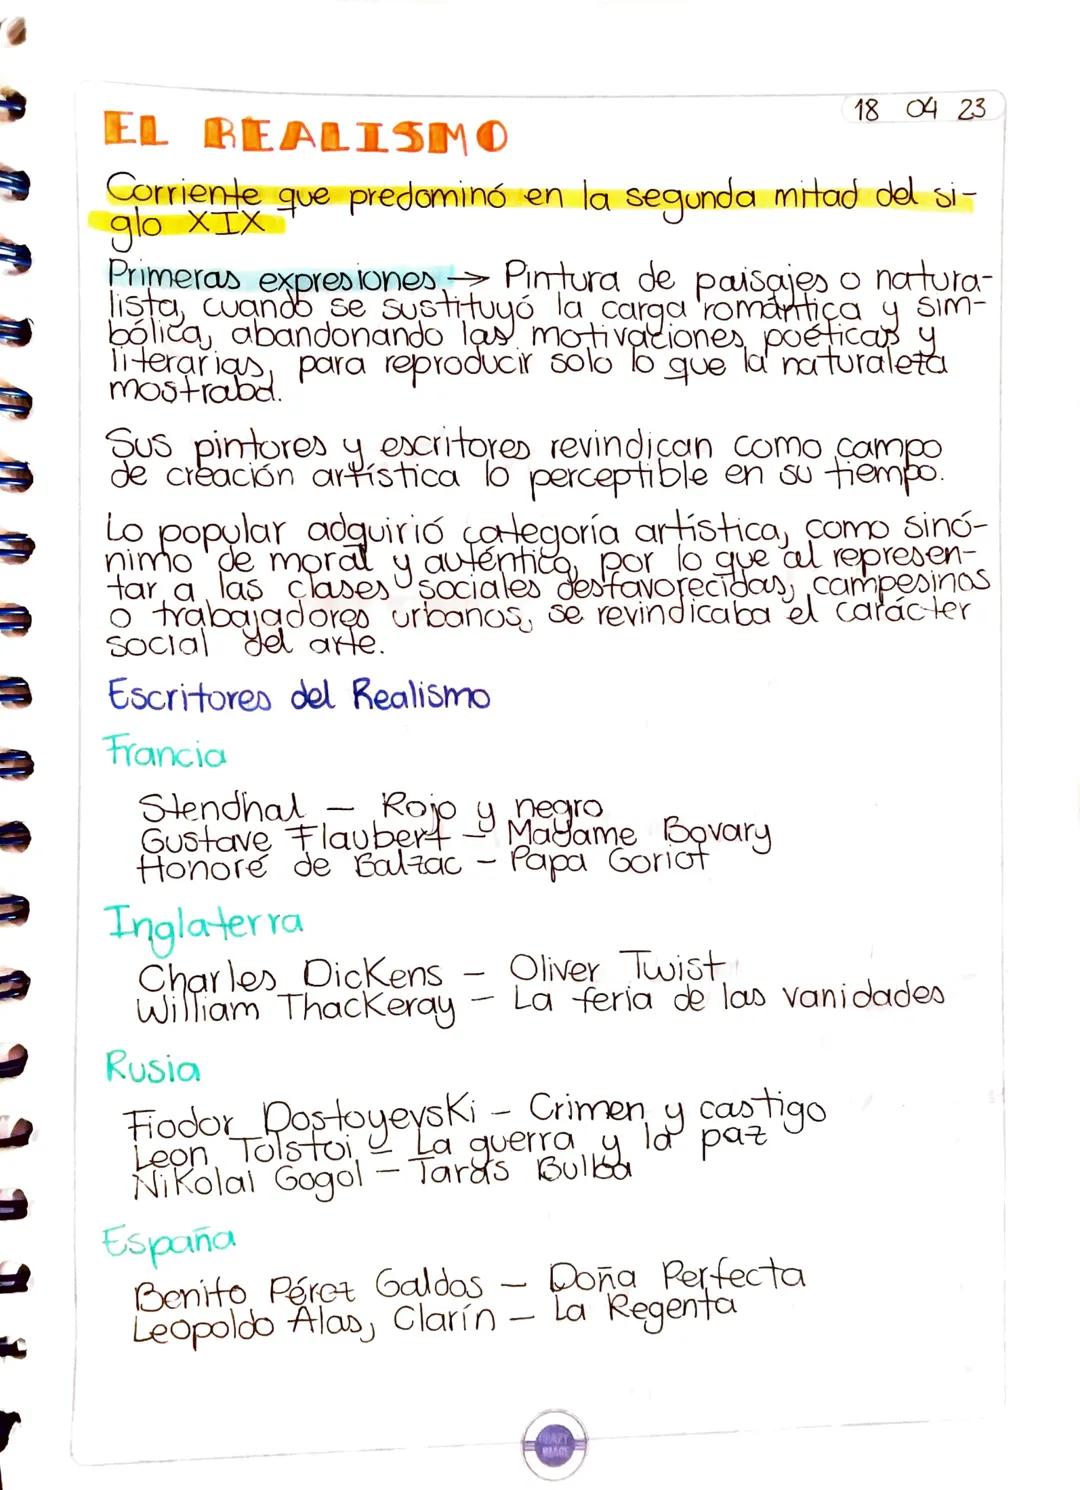 18 04 23
EL REALISMO
Corriente que predominó en la segunda mitad del si-
glo XIX
Primeras expresiones → Pintura de paisajes o natura-
lista, cuando se sustituyó la carga romántica y sim-
bólica, abandonando las motivaciones poéticas y
literarias, para reproducir solo lo que la naturaleza
mostraba.
Sus pintores y escritores revindican como campo
de creación artística lo perceptible en su tiempo.
Lo popular adquirió categoría artística, como sinó-
nimo de moral y auténtico, por lo que al represen-
tar a las clases sociales desfavorecidas, campesinos
o trabajadores urbanos, se revindicaba el carácter
social del arte.
Escritores del Realismo
Francia
Stendhal – Rojo y negro
Gustave Flaubert – Madame Bovary
Honoré de Balzac – Papa Goriot
Inglaterra
Charles Dickens – Oliver Twist
William Thackeray – La feria de las vanidades
Rusia
Fiodor Dostoyevski – Crimen y castigo
Leon Tolstoi – La guerra y la paz
Nikolai Gogol – Taras Bulba
España
Benito Pérez Galdos – Doña Perfecta
Leopoldo Alas, Clarín – La Regenta